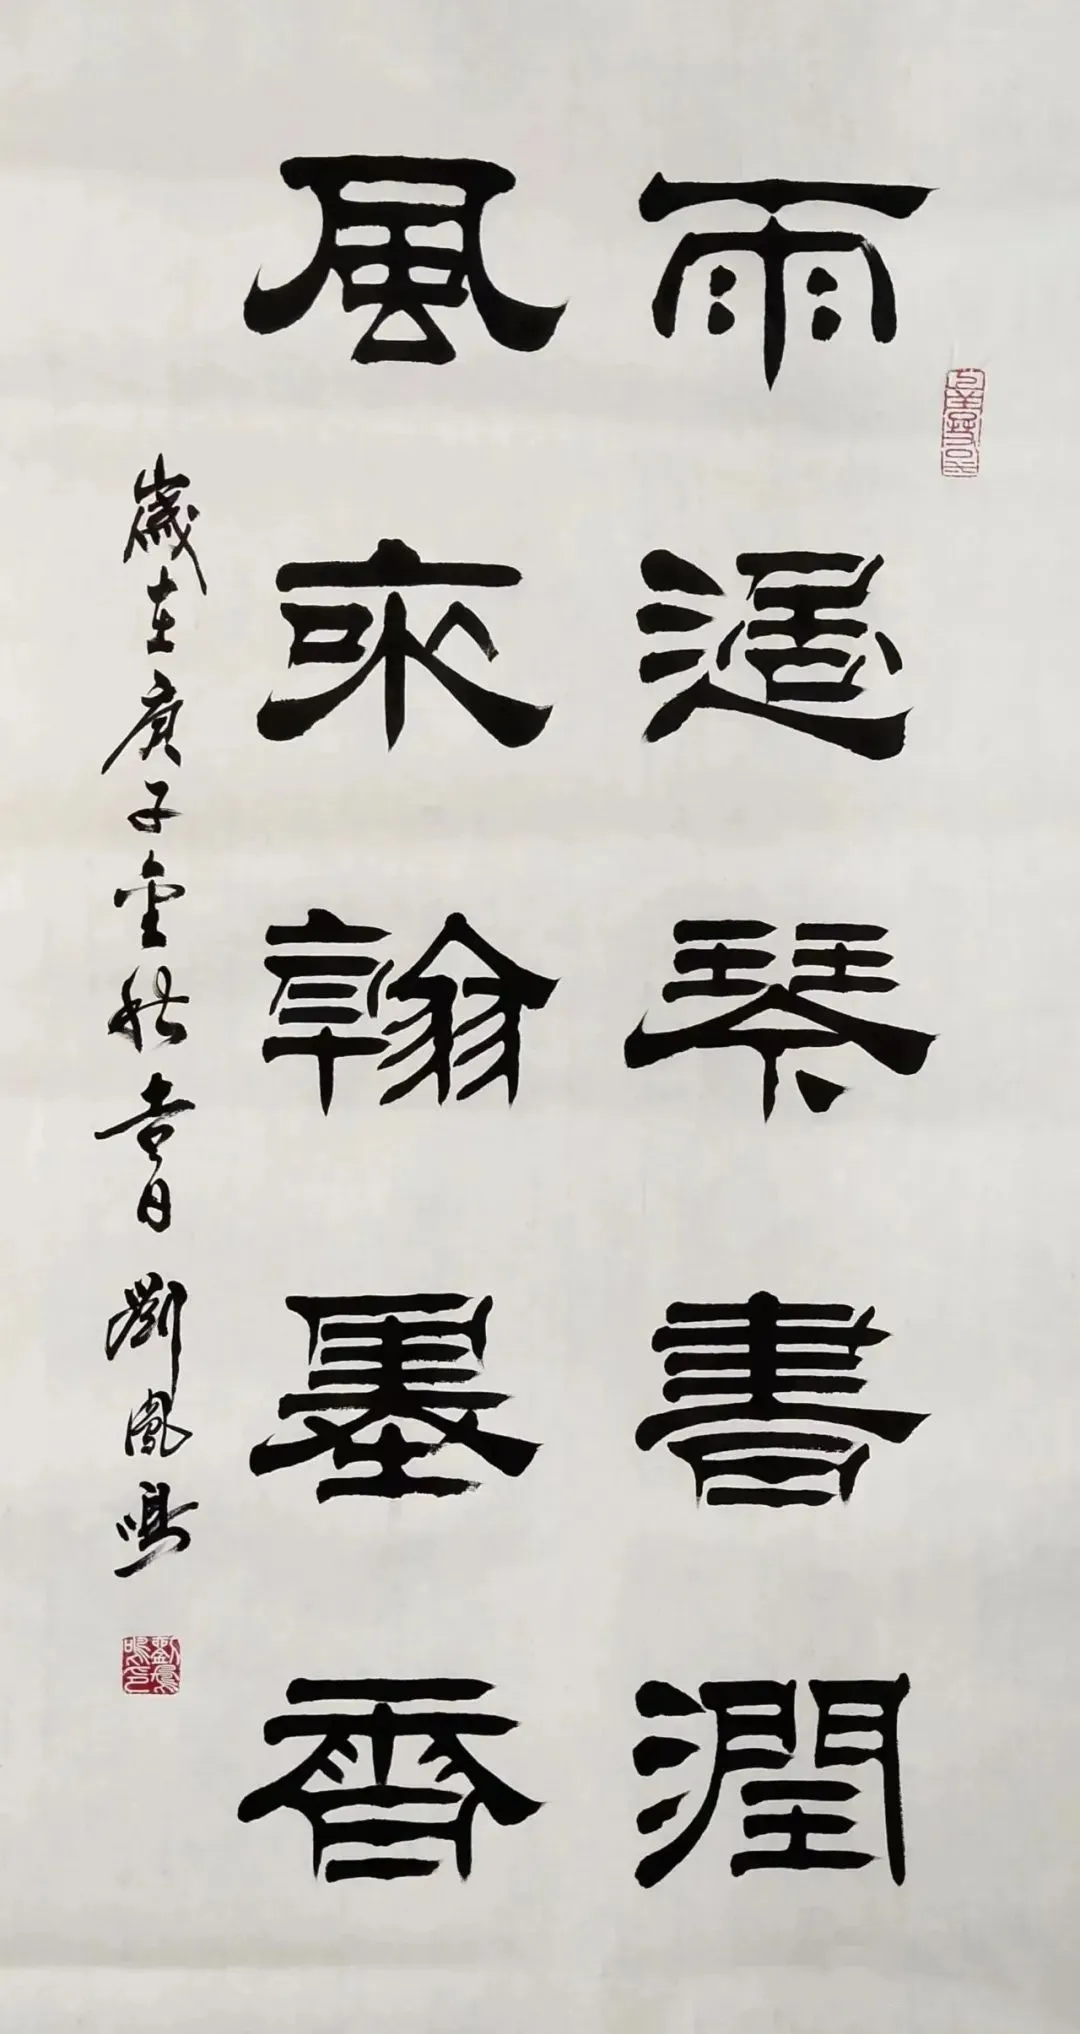 雨過琴書潤
風來翰墨香
歲在庚子金秋吉日 劉鳳鳴